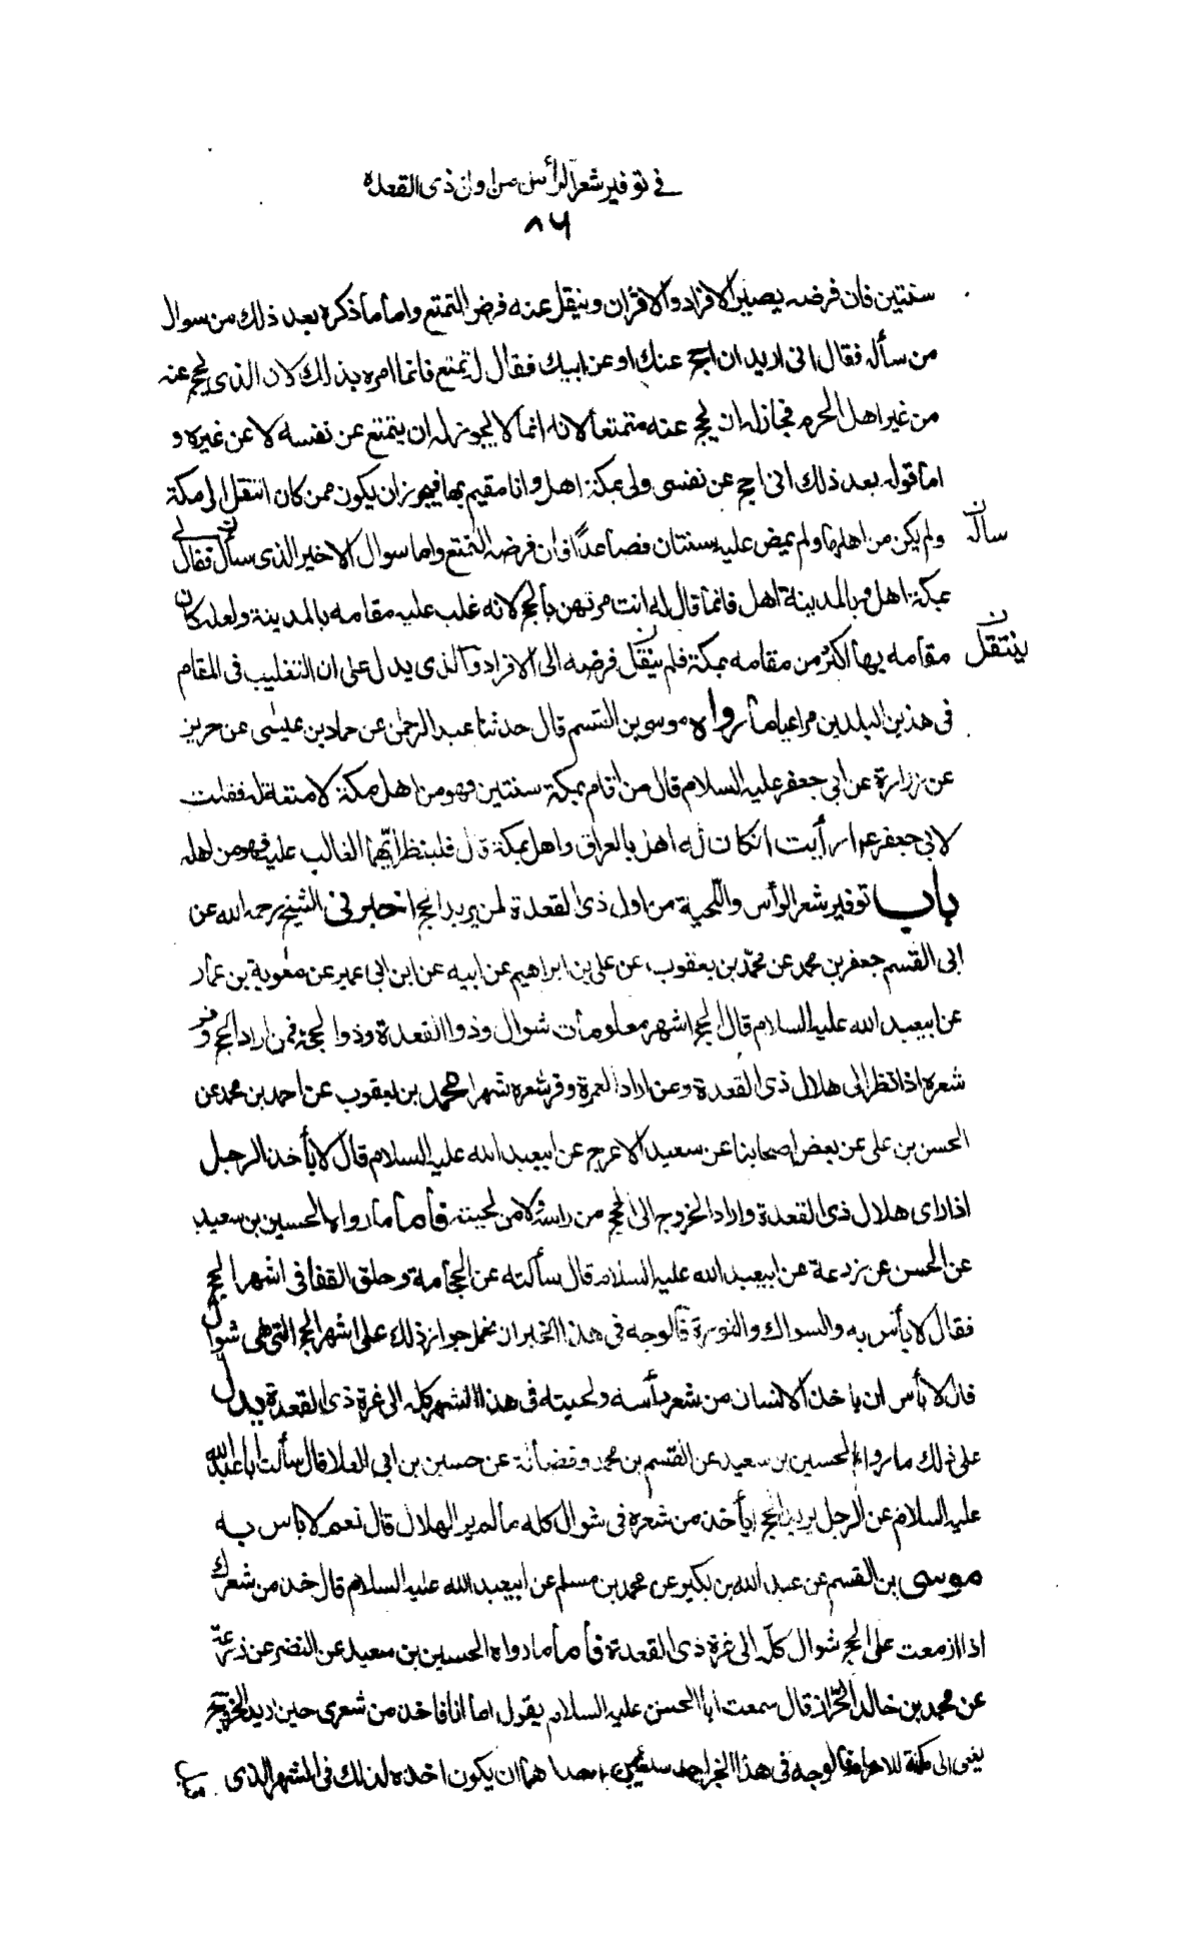 في توفير شعر الرأس من اول ذى القعدة
٨٦
سنتين فان فرضه يصير الافراد والاقران وينقل عنه فرض التمتع واما ما ذكره بعد ذلك من سوال
من سأله فقال انى اريد ان احج عنك او عن ابيك فقال له تمتع فانما امره بذلك لان الذى يحج عنه
من غير اهل الحرم فجاز له ان يحج عنه متمتعا لانه انما لا يجوز له ان يتمتع عن نفسه لا عن غيره و
اما قوله بعد ذلك انى احج عن نفسى ولى بمكة اهل وانا مقيم بها فيجوز ان يكون ممن كان انتقل الى مكة
ولم يكن من اهلها ولم يمض عليه سنتان فصاعدًا فان فرضه التمتع واما سوال الاخير الذى سأل فقال لى
سأله ن
بمكة اهل وبالمدينة اهل فانما قال له انت مرتهن بالحج لانه غلب عليه مقامه بالمدينة ولعله كان
مقامه بها اكثر من مقامه بمكة فلم ينقل فرضه الى الافراد والذى يدل على ان التغليب فى المقام
ينتقل ن
فى هذين البلدين مراعا ما رواه موسى بن القسم قال حدثنا عبد الرحمن عن حماد بن عيسى عن حريز
عن زرارة عن ابى جعفر عليه السلام قال من اقام بمكة سنتين فهو من اهل مكة لا متعة له فقلت
لابى جعفر ع ارأيت ان كان له اهل بالعراق واهل بمكة قال فلينظر ايّهما الغالب عليه فهو من اهله
باب توفير شعر الرأس واللّحية من اول ذى القعدة لمن يريد الحج اخبرنى الشيخ رحمه الله عن
ابى القسم جعفر بن محمد عن محمّد بن يعقوب عن على بن ابراهيم عن ابيه عن ابن ابى عمير عن معوية بن عمار
عن ابيعبد الله عليه السلام قال الحج اشهر معلومات شوال وذو القعدة وذو الحجة فمن اراد الحج وفر
شعره اذا نظر الى هلال ذى القعدة ومن اراد العمرة وفر شعره شهرا محمد بن يعقوب عن احمد بن محمد عن
الحسن بن على عن بعض اصحابنا عن سعيد الاعرج عن ابيعبد الله عليه السلام قال لا يأخذ الرجل
اذا راى هلال ذى القعدة واراد الخروج الى الحج من راسه ولا من لحيته فأما ما رواه الحسين بن سعيد
عن الحسن عن زرعة عن ابيعبد الله عليه السلام قال سألته عن الحجامة وحلق القفا فى اشهر الحج
فقال لا بأس به والسواك والنورة فالوجه فى هذا الخبر ان نحمل جواز ذلك على اشهر الحج التى هى شوال
فانه لا بأس ان ياخذ الانسان من شعر رأسه ولحيته فى هذا الشهر كله الى غرة ذى القعدة يدل
على ذلك ما رواه الحسين بن سعيد عن القسم بن محمد وفضالة عن حسين بن ابى العلا قال سألت ابا عبد الله
عليه السلام عن الرجل يريد الحج يأخذ من شعره فى شوال كله ما لم ير الهلال قال نعم لا باس به
موسى بن القسم عن عبد الله بن بكير عن محمد بن مسلم عن ابيعبد الله عليه السلام قال خذ من شعرك
اذا ازمعت على الحج شوال كلّه الى غرة ذى القعدة فأما ما رواه الحسين بن سعيد عن النضر عن زرعة
عن محمد بن خالد الخزاز قال سمعت ابا الحسن عليه السلام يقول اما انا فاخذ من شعرى حين اريد الخروج
يعنى الى مكة للاحرام فالوجه فى هذا الخبر احد شيئين احدهما ان يكون اخذه لذلك فى الشهر الذى